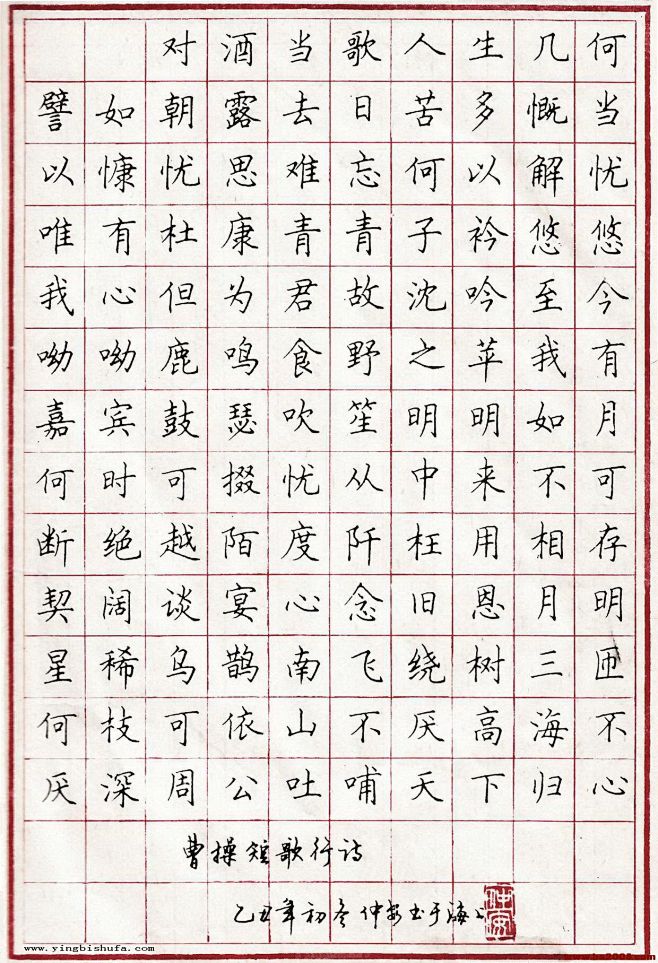 对酒当歌人生几何
譬如朝露去日苦多慨当
以慷忧思难忘何以解忧
唯有杜康青青子衿悠悠
我心但为君故沈吟至今
呦呦鹿鸣食野之苹我有
嘉宾鼓瑟吹笙明明如月
何时可掇忧从中来不可
断绝越陌度阡枉用相存
契阔谈宴心念旧恩月明
星稀乌鹊南飞绕树三匝
何枝可依山不厌高海不
厌深周公吐哺天下归心
曹操短歌行诗
乙丑年初冬仲安书于海上
www.yingbishufa.com